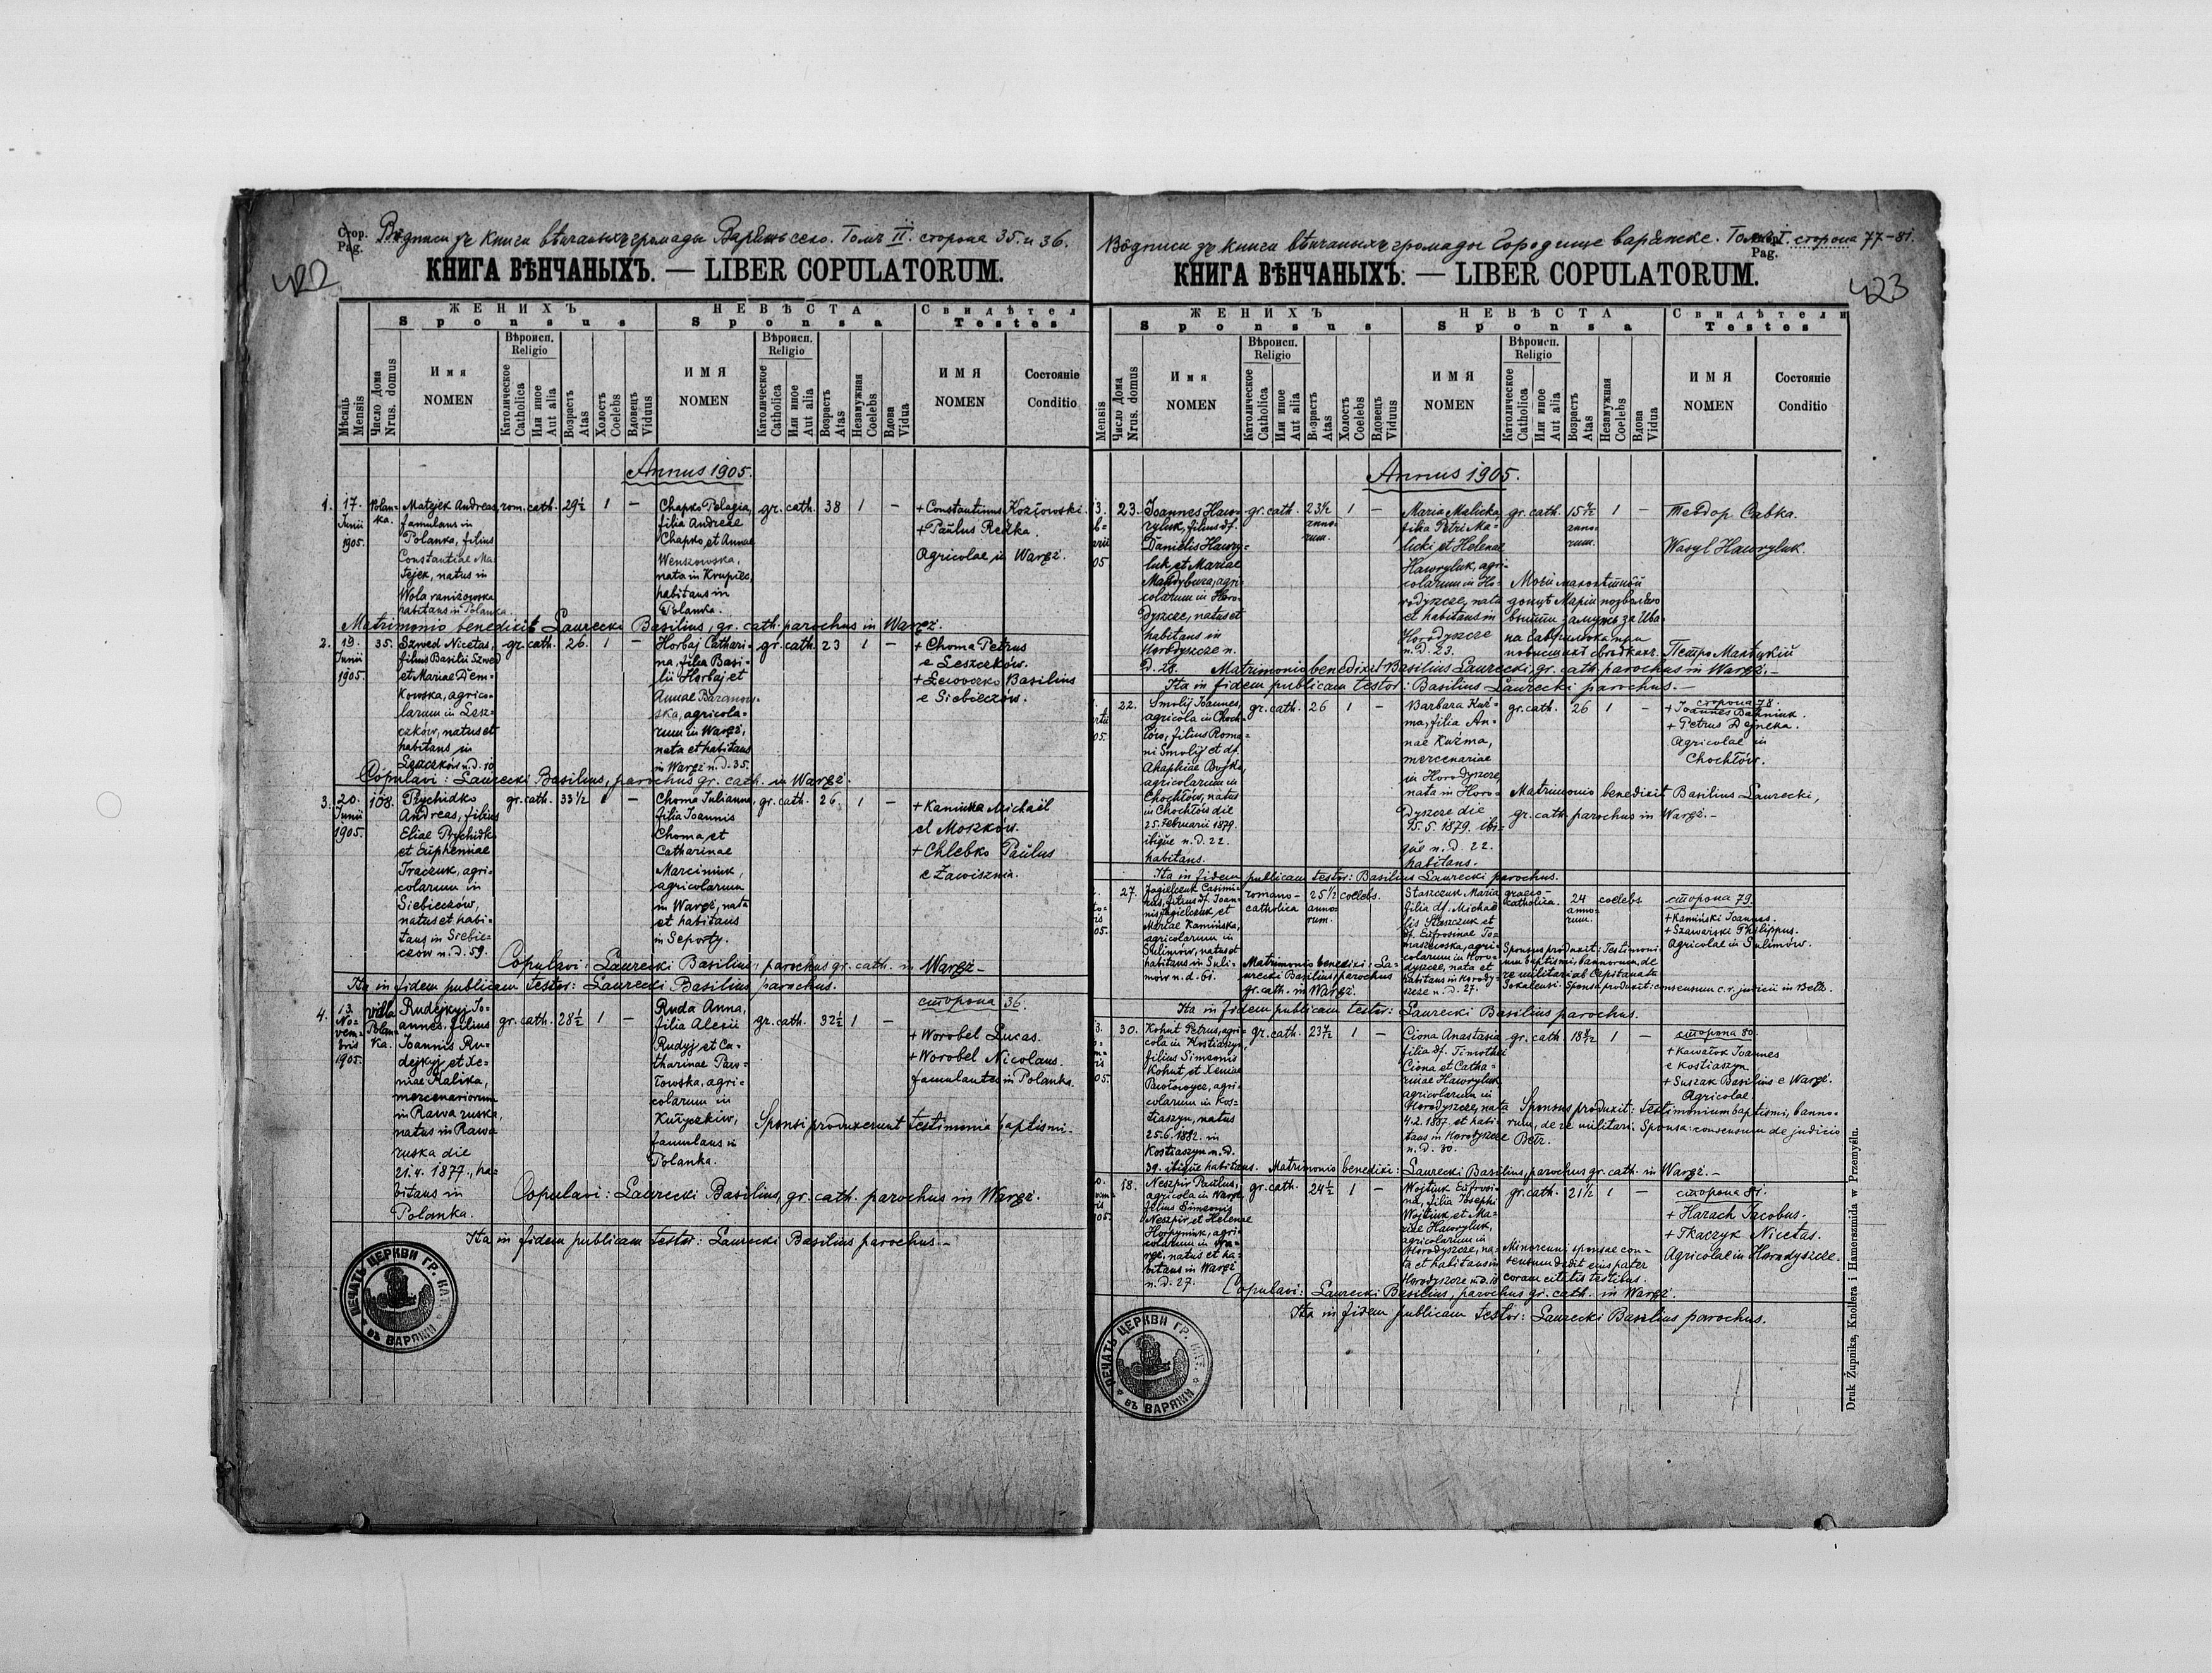 Стор.
Pag.
Вôдписи зъ книги вѣнчаныхъ громады Варяжъ село. Томъ II. сторона 35. и 36.
422
КНИГА ВѢНЧАНЫХЪ. — LIBER COPULATORUM.
Мѣсяць Mensis
Число Дома Nrus. domus
ЖЕНИХЪ
Sponsus
Имя
NOMEN
Вѣроисп.
Religio
Католическое Catholica
Или иное Aut alia
Возрастъ Atas
Холостъ Coelebs
Вдовецъ Viduus
НЕВѢСТА
Sponsa
ИМЯ
NOMEN
Вѣроисп.
Religio
Католическое Catholica
Или иное Aut alia
Возрастъ Atas
Незамужная Coelebs
Вдова Vidua
Свидѣтел
Testes
ИМЯ
NOMEN
Состояніе
Conditio
Annus 1905.
1.
17.
Junii
1905.
Polan-
ka.
Matejek Andreas,
famulans in
Polanka, filius
Constantiae Ma-
tejek, natus in
Wola raniżowska
habitans in Polanka
rom. cath. 29½ 1 —
Chapko Pelagia,
filia Andreae
Chapko et Annae
Wenszowska,
nata in Krupiec,
habitans in
Polanka.
gr. cath. 38 1 —
+ Constantinus Kozłowski.
+ Paulus Redka.
Agricolae in Waręż.
Matrimonio benedixit Laurecki Basilius, gr. cath. parochus in Waręż.
2.
19.
Junii
1905.
35.
Szwed Nicetas,
filius Basilii Szwed
et Mariae Dem-
kowska, agrico-
larum in Lesz-
czków, natus et
habitans in
Leszczków n. d. 10
gr. cath. 26. 1 —
Horbaj Cathari-
na, filia Basi-
lii Horbaj et
Annae Baranow-
ska, agricola-
rum in Waręż,
nata et habitans
in Waręż n. d. 35.
gr. cath. 23 1 —
+ Choma Petrus
e Leszczków.
+ Lewoczko Basilius
e Siebieczów.
Copulavi: Laurecki Basilius, parochus gr. cath. in Waręż.
3.
20.
Junii
1905.
108.
Ptychidko
Andreas, filius
Eliae Ptychidko
et Eupheniae
Traczuk, agri-
colarum in
Siebieczów,
natus et habi-
tans in Siebie-
czów n. d. 59.
gr. cath. 33½ 1 —
Choma Julianna,
filia Joannis
Choma et
Catharinae
Marciniuk,
agricolarum
in Waręż, nata
et habitans
in Seporty.
gr. cath. 26 1 —
+ Kaminka Michaël
el Moszków.
+ Chlebko Paulus
e Zawisznia.
Copulavi: Laurecki Basilius, parochus gr. cath. in Waręż —
Ita in fidem publicam testor: Laurecki Basilius parochus.
4.
13.
No-
vem-
bris
1905.
villa
Polan-
ka.
Rudejkyj Jo-
annes, filius
Joannis Ru-
dejkyj et Xe-
niae Kalika,
mercenariorum
in Rawa ruska,
natus in Rawa
ruska die
21.4.1877., ha-
bitans in
Polanka.
gr. cath. 28½ 1 —
Ruda Anna,
filia Alexii
Rudyj et Ca-
tharinae Paw-
łowska, agri-
colarum in
Kuliczków,
famulans in
Polanka.
gr. cath. 32½ 1 —
сторона 36.
+ Worobel Lucas.
+ Worobel Nicolaus.
famulantes in Polanka.
Sponsi produxerunt testimonia baptismi.
Copulavi: Laurecki Basilius, gr. cath. parochus in Waręż.
Ita in fidem publicam testor: Laurecki Basilius parochus.—
ПЕЧАТЬ ЦЕРКВИ ГР. КАТ. ВЪ ВАРЯЖИ
Вôдписи зъ книги вѣнчаныхъ громады Городище варяжске. Томъ I. сторона 77–81.
Pag.
423
КНИГА ВѢНЧАНЫХЪ. — LIBER COPULATORUM.
Mensis
Число Дома Nrus. domus
ЖЕНИХЪ
Sponsus
Имя
NOMEN
Вѣроисп.
Religio
Католическое Catholica
Или иное Aut alia
Возрастъ Atas
Холостъ Coelebs
Вдовецъ Viduus
НЕВѢСТА
Sponsa
ИМЯ
NOMEN
Вѣроисп.
Religio
Католическое Catholica
Или иное Aut alia
Возрастъ Atas
Незамужная Coelebs
Вдова Vidua
Свидѣтели
Testes
ИМЯ
NOMEN
Состояніе
Conditio
Annus 1905.
23.
Joannes Haw-
ryluk, filius df.
Danielis Hawry-
luk et Mariae
Mandybura, agri-
colarum in Horo-
dyszcze, natus et
habitans in
Horodyszcze n.
d. 28.
gr. cath. 1 —
anno-
rum.
Maria Malicka,
filia Petri Ma-
licki et Helenae
Hawryluk, agri-
colarum in Ho-
rodyszcze, nata
et habitans in
Horodyszcze
n. d. 23.
gr. cath. 1 —
anno-
rum.
Теôдор Савка.
Wasyl Hawryluk.
Моѣй малолѣтнôй
доцѣ Маріи позволяю
выйти замужъ за Ива-
на Гаврилюка при
повысшихъ свѣдкахъ. Петро Маліцкій
Matrimonio benedixit Basilius Laurecki, gr. cath. parochus in Waręż.—
Ita in fidem publicam testor: Basilius Laurecki parochus.—
22.
Smolij Joannes,
agricola in Choch-
łów, filius Roma-
ni Smolij et df.
Ahaphiae Bojko,
agricolarum in
Chochłów, natus
in Chochłów die
25. Februarii 1879.
ibique n. d. 22.
habitans.
gr. cath. 26 1 —
Barbara Kuź-
ma, filia An-
nae Kuźma,
mercenariae
in Horodyszcze,
nata in Horo-
dyszcze die
15.5.1879. ibi-
que n. d. 22.
habitans.
gr. cath. 26 1 —
сторона 78.
+ Joannes Bahniuk.
+ Petrus Dejneka.
Agricolae in
Chochłów.
Matrimonio benedixit Basilius Laurecki,
gr. cath. parochus in Waręż.—
Ita in fidem publicam testor: Basilius Laurecki parochus.
27.
Jagielczuk Casimi-
rus, filius df. Joan-
nis Jagielczuk et
Mariae Kamińska,
agricolarum in
Sulimów, natus et
habitans in Suli-
mów n. d. 61.
romano-
catholica
25½
anno-
rum.
coelebs.
Staszczuk Maria
filia df. Michaë-
lis Staszczuk et
df. Eufrosinae To-
maszewska, agri-
colarum in Horo-
dyszcze, nata et
habitans in Horody-
szcze n. d. 27.
graeco-
catholica.
24
anno-
rum.
coelebs
сторона 79.
+ Kamiński Joannes.
+ Szawarski Philippus.
Agricolae in Sulimów.
Matrimonio benedixi: La-
urecki Basilius, parochus
gr. cath. in Waręż.
Sponsus produxit: Testimoni-
um baptismi, bannorum, de
re militari ab Capitanatu
Sokalensi. Sponsa produxit: consensum c. r. judicii in Bełz.
Ita in fidem publicam testor: Laurecki Basilius parochus.
30.
Kohut Petrus, agri-
cola in Kostiaszyn,
filius Simeonis
Kohut et Xeniae
agricolarum in Kos-
tiaszyn, natus
25.6.1882. in
Kostiaszyn n. d.
39. ibique habitans.
gr. cath. 1 —
Ciona Anastasia
filia df. Timothei
Ciona et Catha-
rinae Hawryluk
agricolarum in
Horodyszcze, nata
4.2.1887. et habi-
tans in Horodyszcze
n. d. 30.
gr. cath. 1 —
сторона 80.
+ Kawałok Joannes
e Kostiaszyn
+ Suszak Basilius e Waręż.
Agricolae.
Sponsus produxit: testimonium baptismi, banno-
rum, de re militari. Sponsa: consensum de judicio
Bełz.
Matrimonio benedixi: Laurecki Basilius, parochus gr. cath. in Waręż.—
18.
Neszpir Paulus,
agricola in Waręż,
filius Simeonis
Neszpir et Helenae
Horpyniuk, agri-
colarum in Wa-
ręż, natus et ha-
bitans in Waręż
n. d. 27.
gr. cath. 24½ 1 —
Wojtiuk Eufrosi-
na, filia Josephi
Wojtiuk et Ma-
riae Hawryluk,
agricolarum in
Horodyszcze, na-
ta et habitans in
Horodyszcze n. d. 18
gr. cath. 21½ 1 —
сторона 81.
+ Harach Jacobus.
+ Tkaczyk Nicetas.
Agricolae in Horodyszcze.
Minorenni sponsae con-
sensum dedit eius pater
coram citatis testibus.
Copulavi: Laurecki Basilius, parochus gr. cath. in Waręż.
Ita in fidem publicam testor: Laurecki Basilius parochus.
ПЕЧАТЬ ЦЕРКВИ ГР. КАТ. ВЪ ВАРЯЖИ
Druk Żupnika, Knollera i Hamerszmida w Przemyślu.